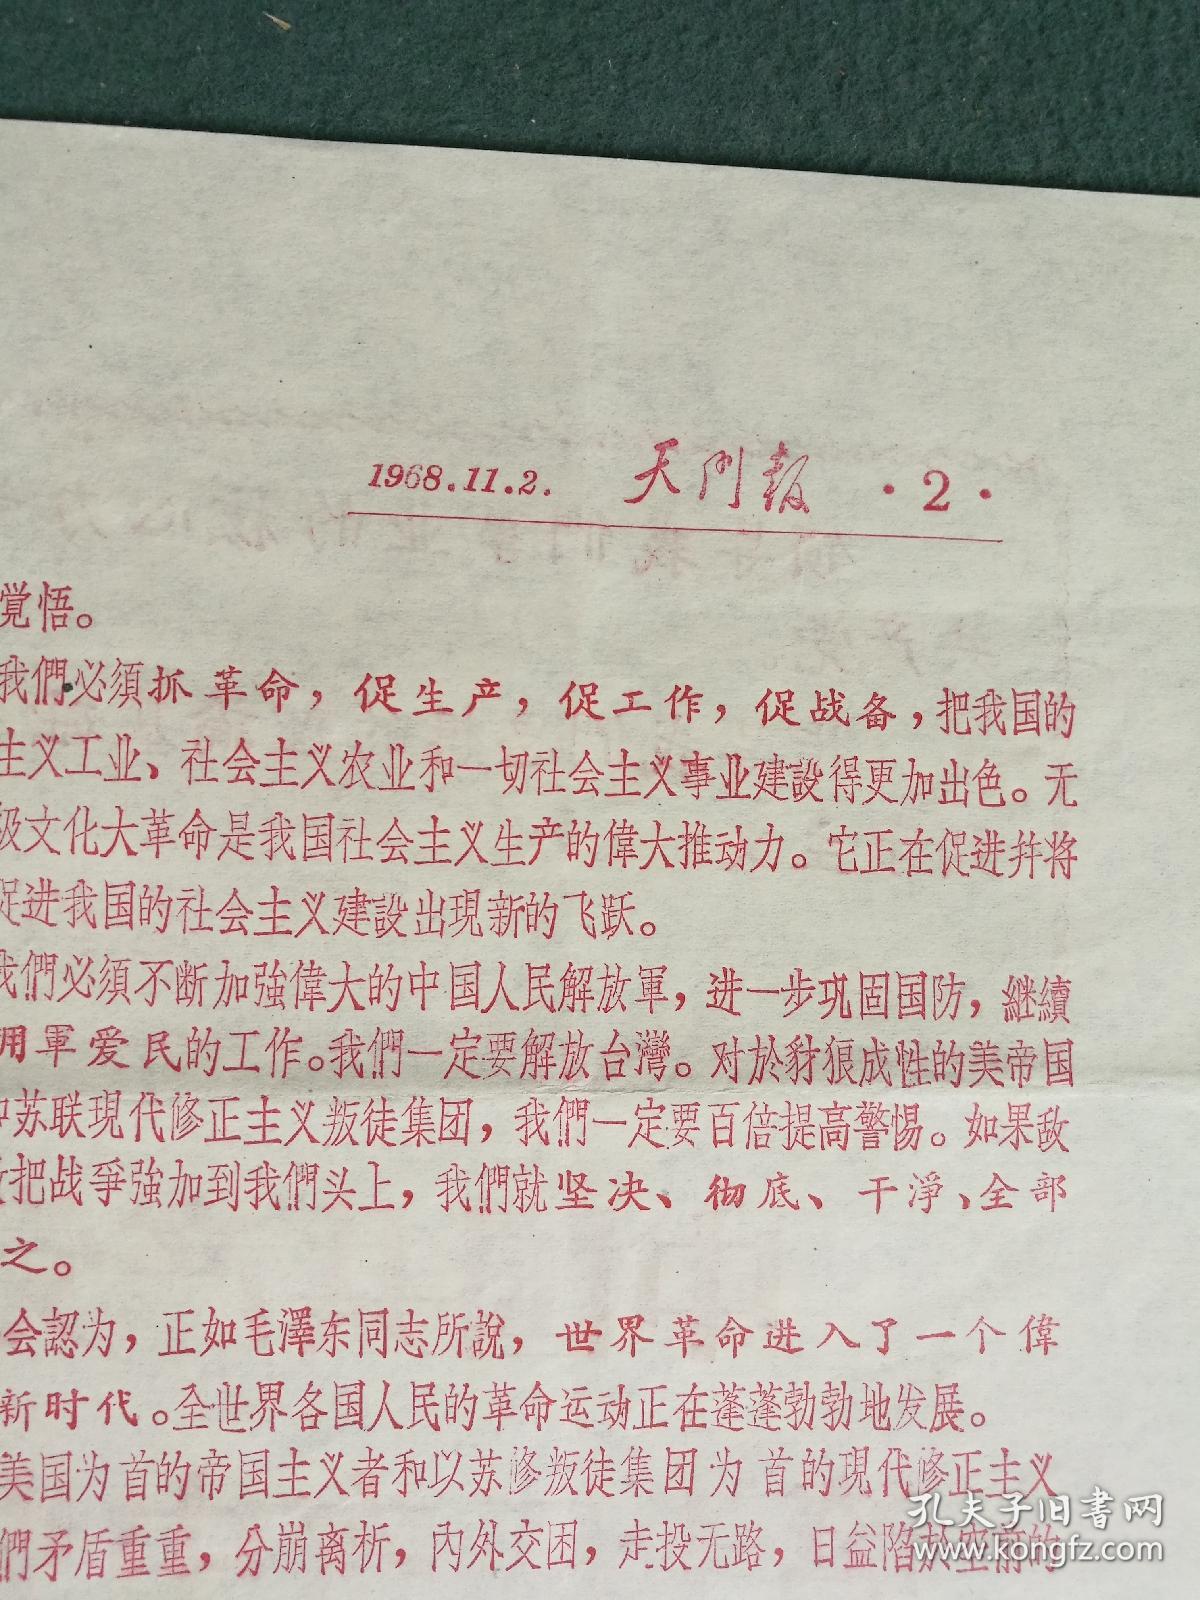 1968.11.2. 天门报 ·2·
覚悟。
我們必須抓革命，促生产，促工作，促战备，把我国的
主义工业、社会主义农业和一切社会主义事业建設得更加出色。无
级文化大革命是我国社会主义生产的偉大推动力。它正在促进并将
促进我国的社会主义建設出現新的飞跃。
我們必須不断加強偉大的中国人民解放軍，进一步巩固国防，継續
拥軍爱民的工作。我們一定要解放台灣。对於豺狼成性的美帝国
和苏联現代修正主义叛徒集团，我們一定要百倍提高警惕。如果敌
敢把战爭強加到我們头上，我們就坚决、彻底、干淨、全部
之。
会認为，正如毛澤东同志所說，世界革命进入了一个偉
新时代。全世界各国人民的革命运动正在蓬蓬勃勃地发展。
美国为首的帝国主义者和以苏修叛徒集团为首的現代修正主义
們矛盾重重，分崩离析，內外交困，走投无路，日益陷於空前的
孔夫子旧書网
www.kongfz.com